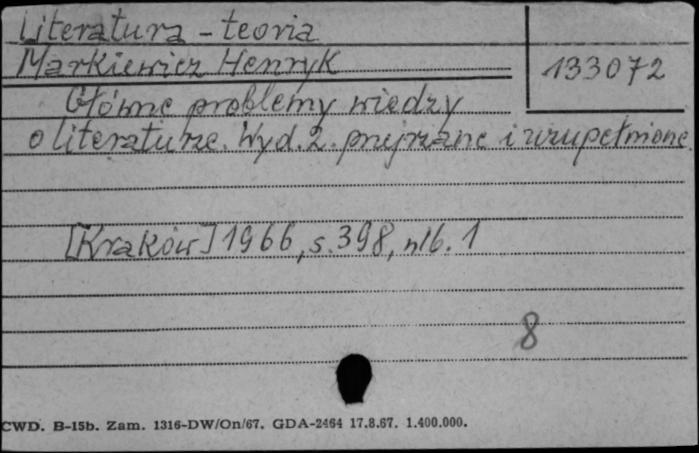 Literatura - teoria
Markiewicz Henryk
133072
Główne problemy wiedzy
o literaturze. Wyd. 2. przejrzane i uzupełnione.
[Kraków] 1966, s. 398, nlb. 1
8
CWD. B-15b. Zam. 1316-DW/On/67. GDA-2464 17.8.67. 1.400.000.